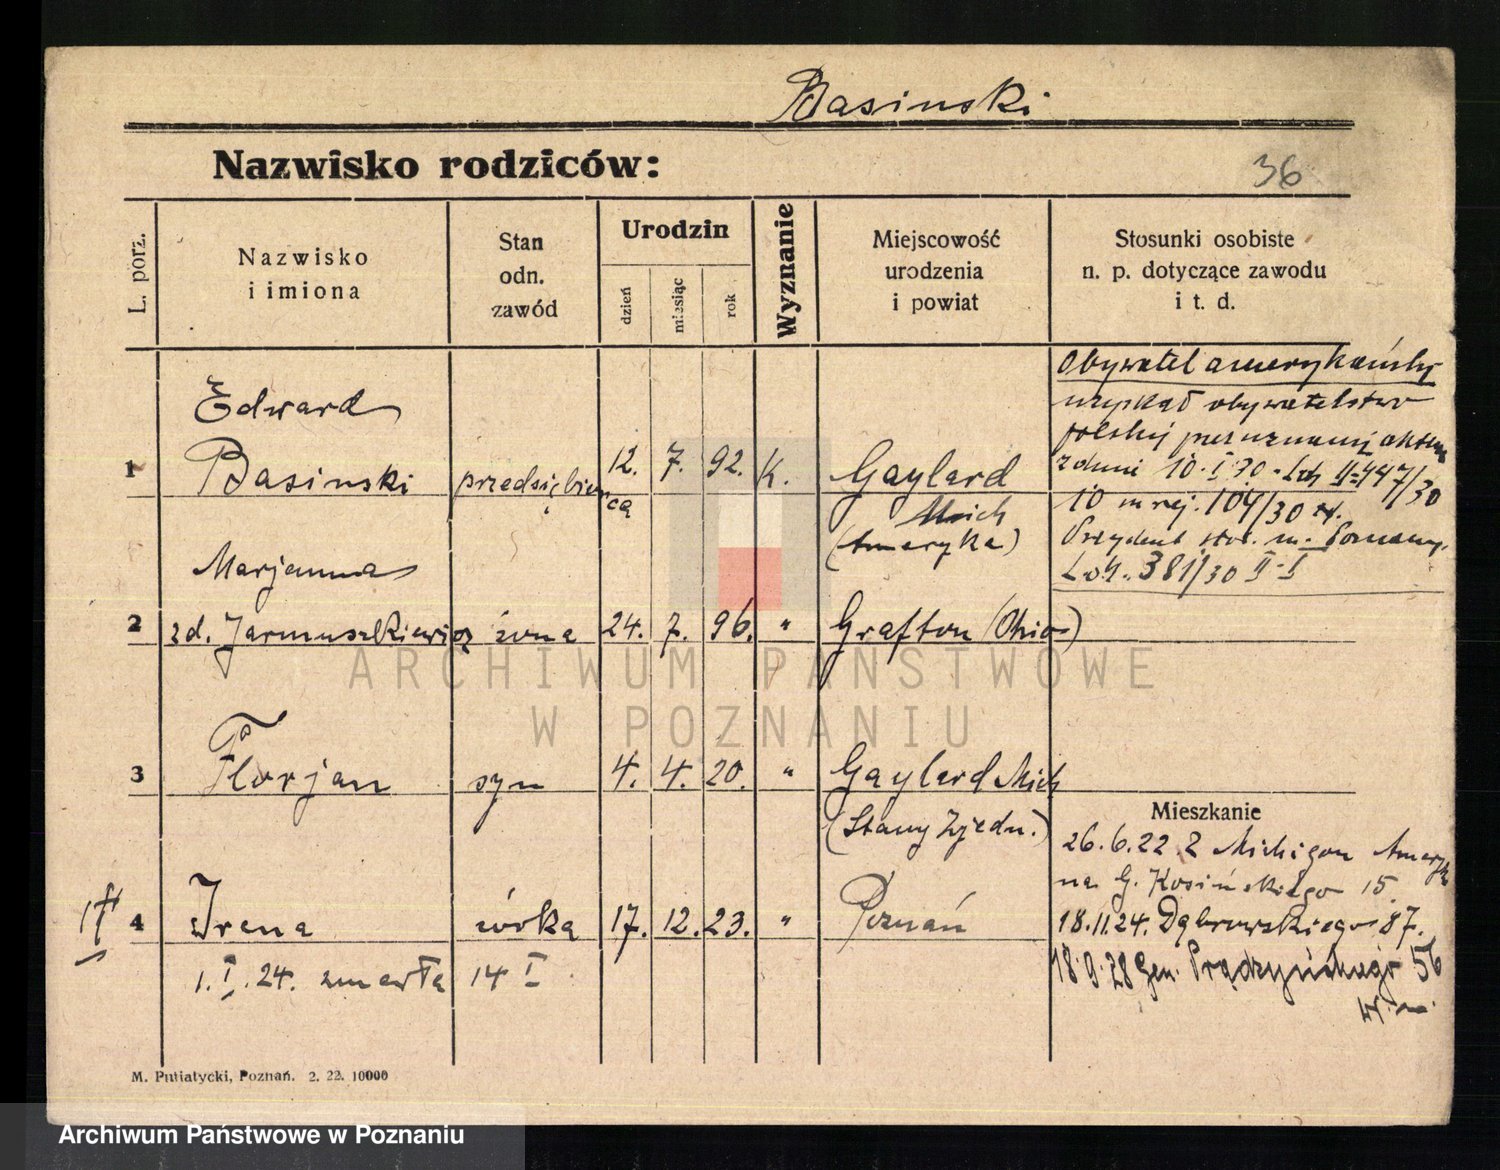 Basinski
Nazwisko rodziców:
36
L. porz.
Nazwisko
i imiona
Stan
odn.
zawód
Urodzin
dzień
miesiąc
rok
Wyznanie
Miejscowość
urodzenia
i powiat
Stosunki osobiste
n. p. dotyczące zawodu
i t. d.
Edward
1 Basinski przedsiębiorca 12. 7. 92. K. Gaylard
Mich
(Ameryka)
Obywatel amerykański
uzyskał obywatelstwo
polskiej
10.I.30. Lch II-447/30
10 m rej. 104/30
Prezydent stoł. m. Poznany.
L.dz. 381/30 II-I
Marjanna
2 zd. Jarmuszkiewicz żona 24. 7. 96. " Grafton (Ohio)
3 Florjan syn 4. 4. 20. " Gaylard Mich
(Stany Zjedn.)
Mieszkanie
26.6.22 z Michigan Ameryk
na G. Kosińskiego 15
4 Irena córka 17. 12. 23. " Poznań
18.11.24. Dąbrowskiego 87.
1.I.24. zmarła 14 I
18.9.28 Gen. Prądzyńskiego 56
M. Putiatycki, Poznań. 2. 22. 10000
ARCHIWUM PAŃSTWOWE
W POZNANIU
Archiwum Państwowe w Poznaniu